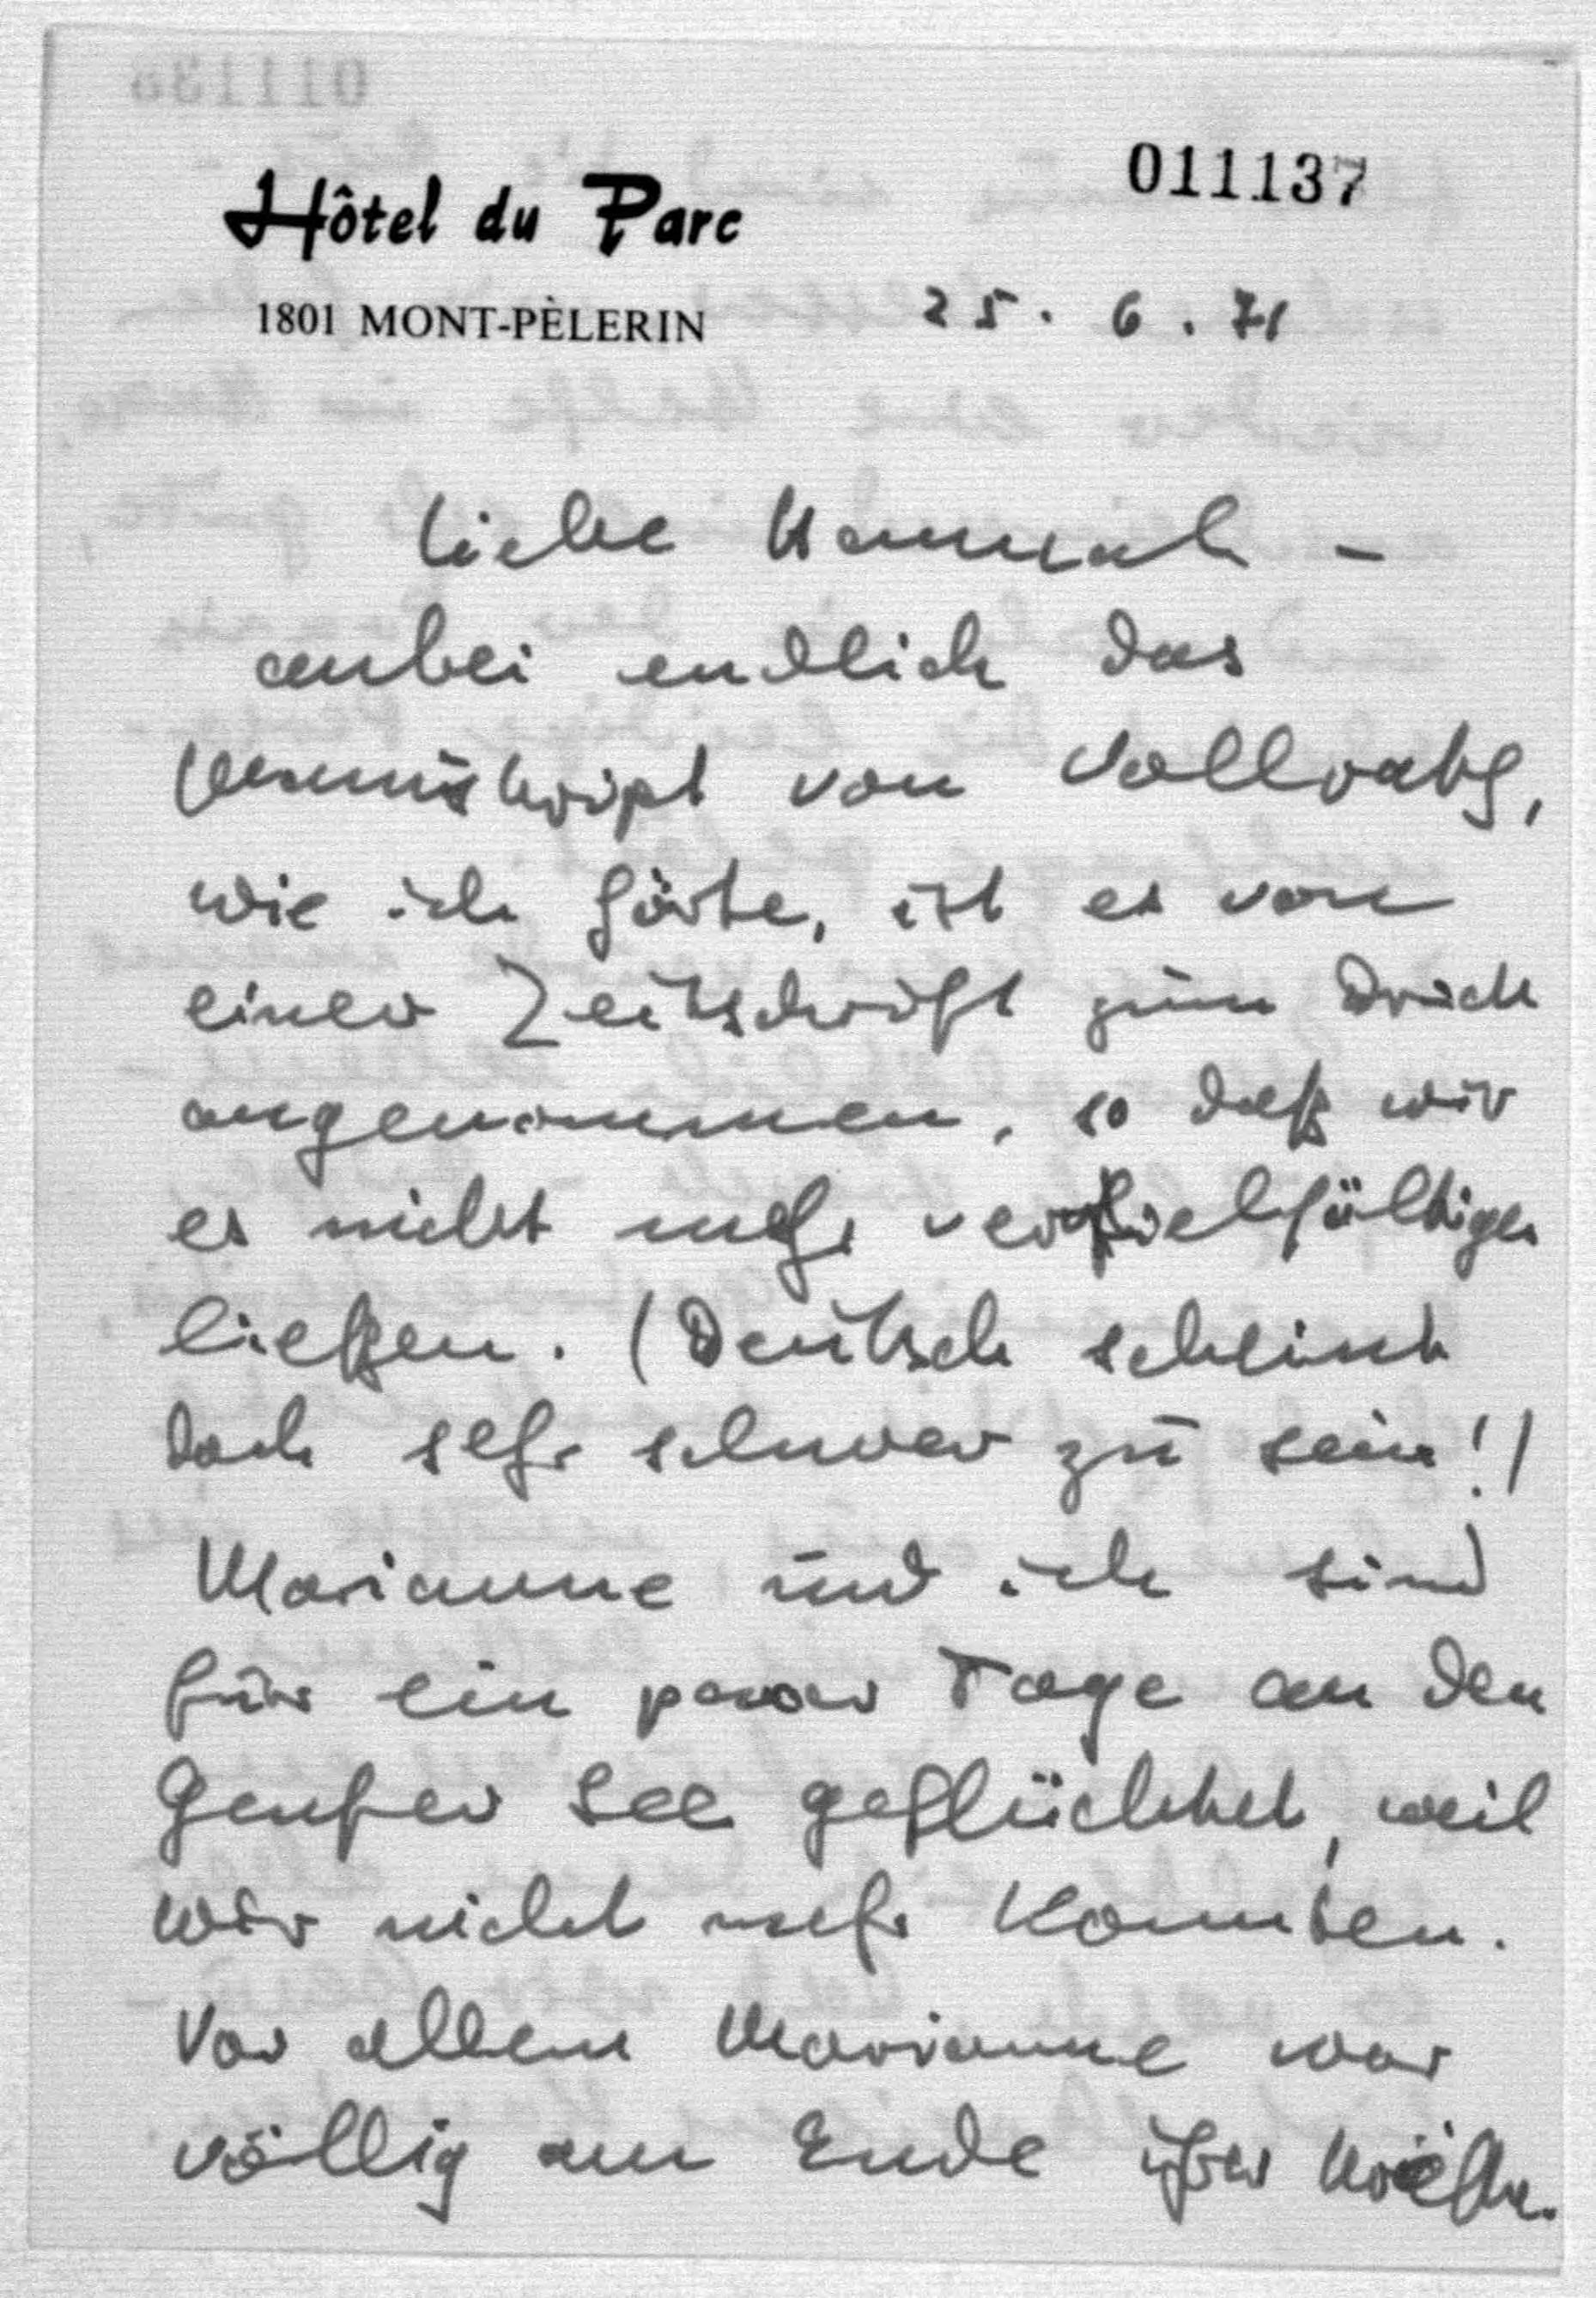 011137
Hôtel du Parc
1801 MONT-PÈLERIN
25. 6. 71
Liebe Hannah –
anbei endlich das
Manuskript von Vollrath,
wie ich hörte, ist es von
einer Zeitschrift zum Druck
angenommen, so daß wir
es nicht mehr vervielfältigen
ließen. (Deutsch scheint
doch sehr schwer zu sein!)
Marianne und ich sind
für ein paar Tage an den
Genfer See geflüchtet, weil
wir nicht mehr konnten.
Vor allem Marianne war
völlig am Ende ihrer Kräfte.